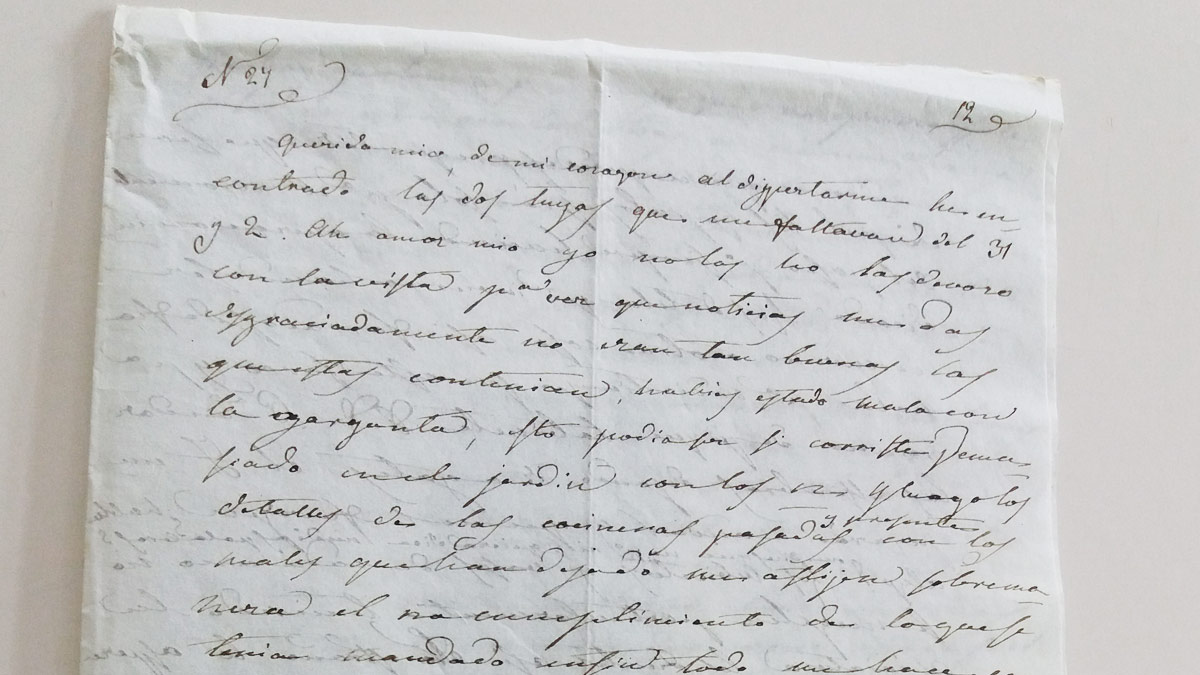 Nº 27
12
Querida mia, de mi corazon al dispertarme he en-
contrado las dos tuyas que me faltavan del 31
y 2. Ah amor mio yo no las leo las devoro
con la vista pª ver que noticias me das
desgraciadamente no eran tan buenas las
que estas contenian, habias estado mala con
la garganta, esto podia ser si corriste dema-
siado en el jardin con los n.s y luego los
detalles de las cocineras pasadas y presente con los
males que han dejado me aflijen sobrema-
nera el no cumplimiento de lo que se
tenia mandado enfin todo me hace